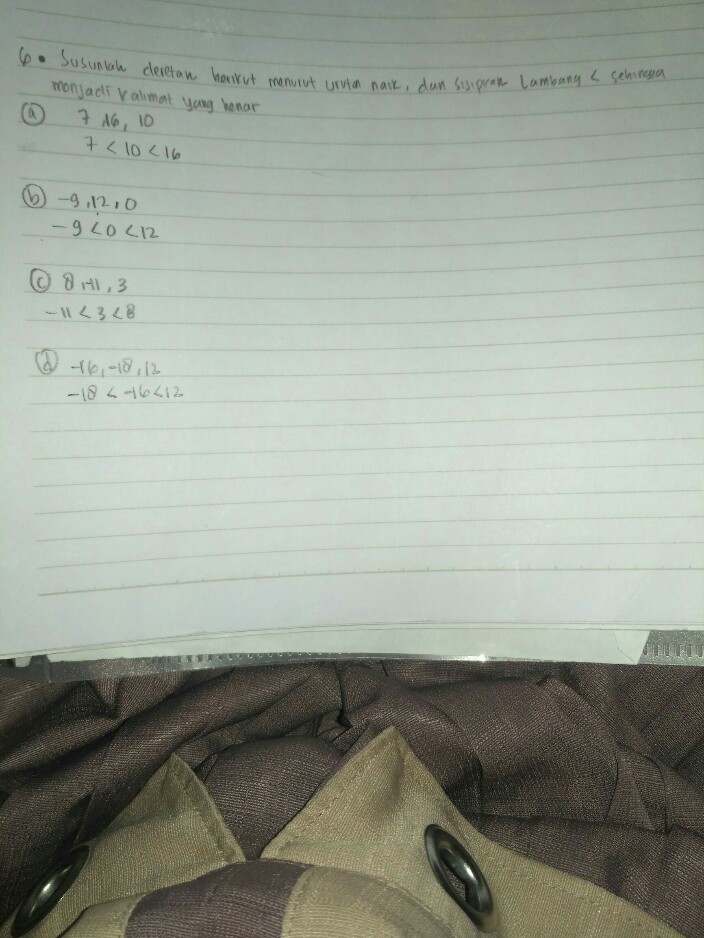 6. Susunlah deretan berikut menurut urutan naik, dan sisipkan Lambang < sehingga
menjadi kalimat yang benar
(a) 7, 16, 10
7 < 10 < 16
(b) -9, 12, 0
-9 < 0 < 12
(c) 8, -11, 3
-11 < 3 < 8
(d) -16, -18, 12
-18 < -16 < 12